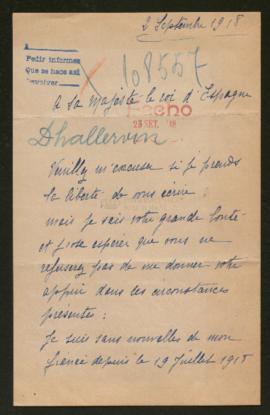 2 Septembre 1918
Pedir informes
Que se hace así
devolver
108557
A sa majesté le roi d'Espagne
Hecho
23 SET. 18
Dhallervin
Veuillez m'excuser si je prends
la liberté de vous écrire
mais je sais votre grande bonté
et j'ose espérer que vous ne
refuserez pas de me donner votre
appui dans les circonstances
présentes :
Je suis sans nouvelles de mon
fiancé depuis le 19 Juillet 1918